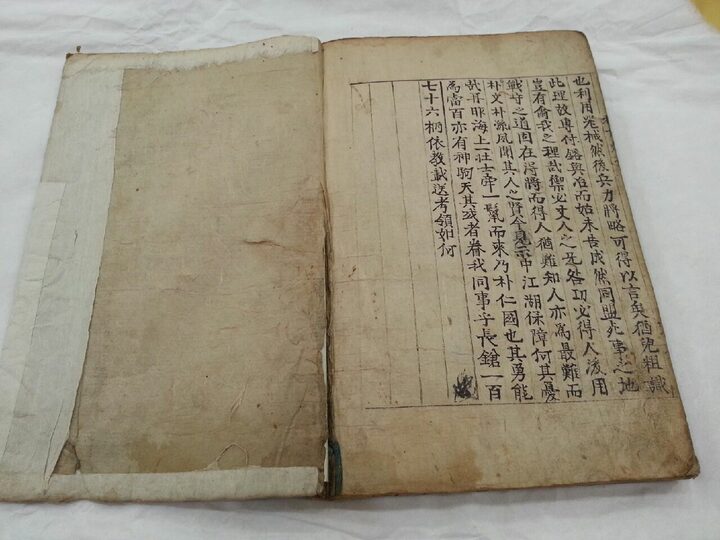 也利用器械然後兵力將略可得以言矣猶況粗識
此理故專付與准而始末告成然同盟死事之地
豈有我之理哉禦必丈人之咎功必得人後用
戰守之道固在得將而得人猶難知人亦為最難而
朴文朴源風聞其人之賢今見示中江湖保障何其憂
哉耶海上一壯士帶一而來乃朴仁國也其勇能
為當百亦有神駒天其或者眷我同事乎長鎗一百
七十六柄依教載送考領如何